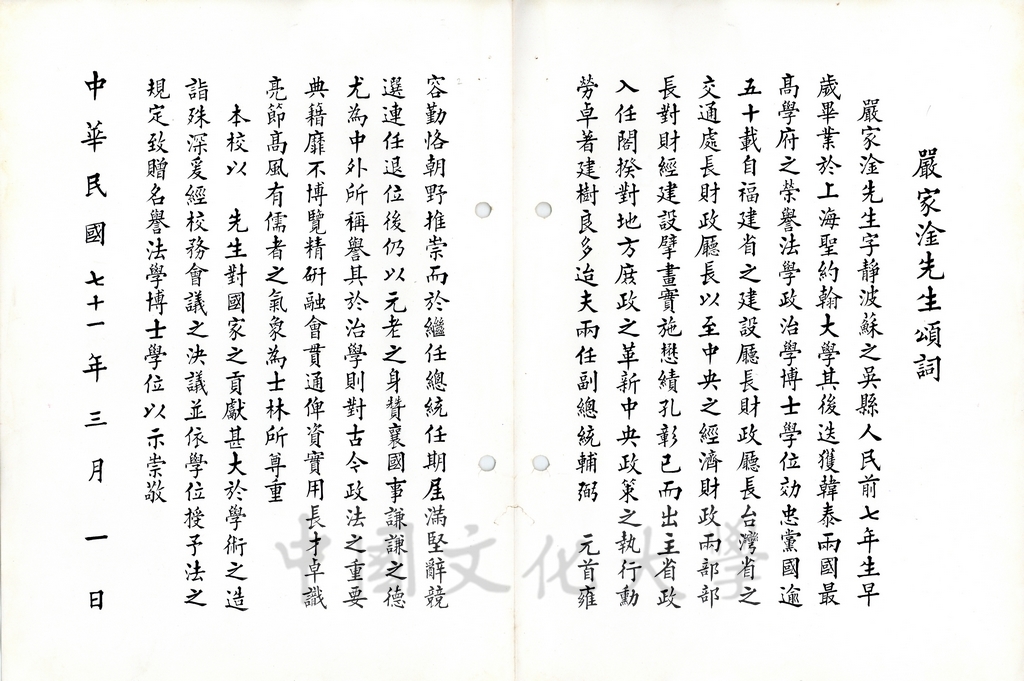 嚴家淦先生頌詞
嚴家淦先生字靜波蘇之吳縣人民前七年生早
歲畢業於上海聖約翰大學其後迭獲韓泰兩國最
高學府之榮譽法學政治學博士學位効忠黨國逾
五十載自福建省之建設廳長財政廳長台灣省之
交通處長財政廳長以至中央之經濟財政兩部部
長對財經建設擘畫實施懋績孔彰已而出主省政
入任閣揆對地方庶政之革新中央政策之執行勳
勞卓著建樹良多迨夫兩任副總統輔弼　元首雍
容勤恪朝野推崇而於繼任總統任期屆滿堅辭競
選連任退位後仍以元老之身贊襄國事謙謙之德
尤為中外所稱譽其於治學則對古今政法之重要
典籍靡不博覽精研融會貫通俾資實用長才卓識
亮節高風有儒者之氣象為士林所尊重
本校以　先生對國家之貢獻甚大於學術之造
詣殊深爰經校務會議之決議並依學位授予法之
規定致贈名譽法學博士學位以示崇敬
中華民國七十一年三月一日
中國文化大學